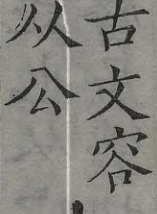 古文容
从公